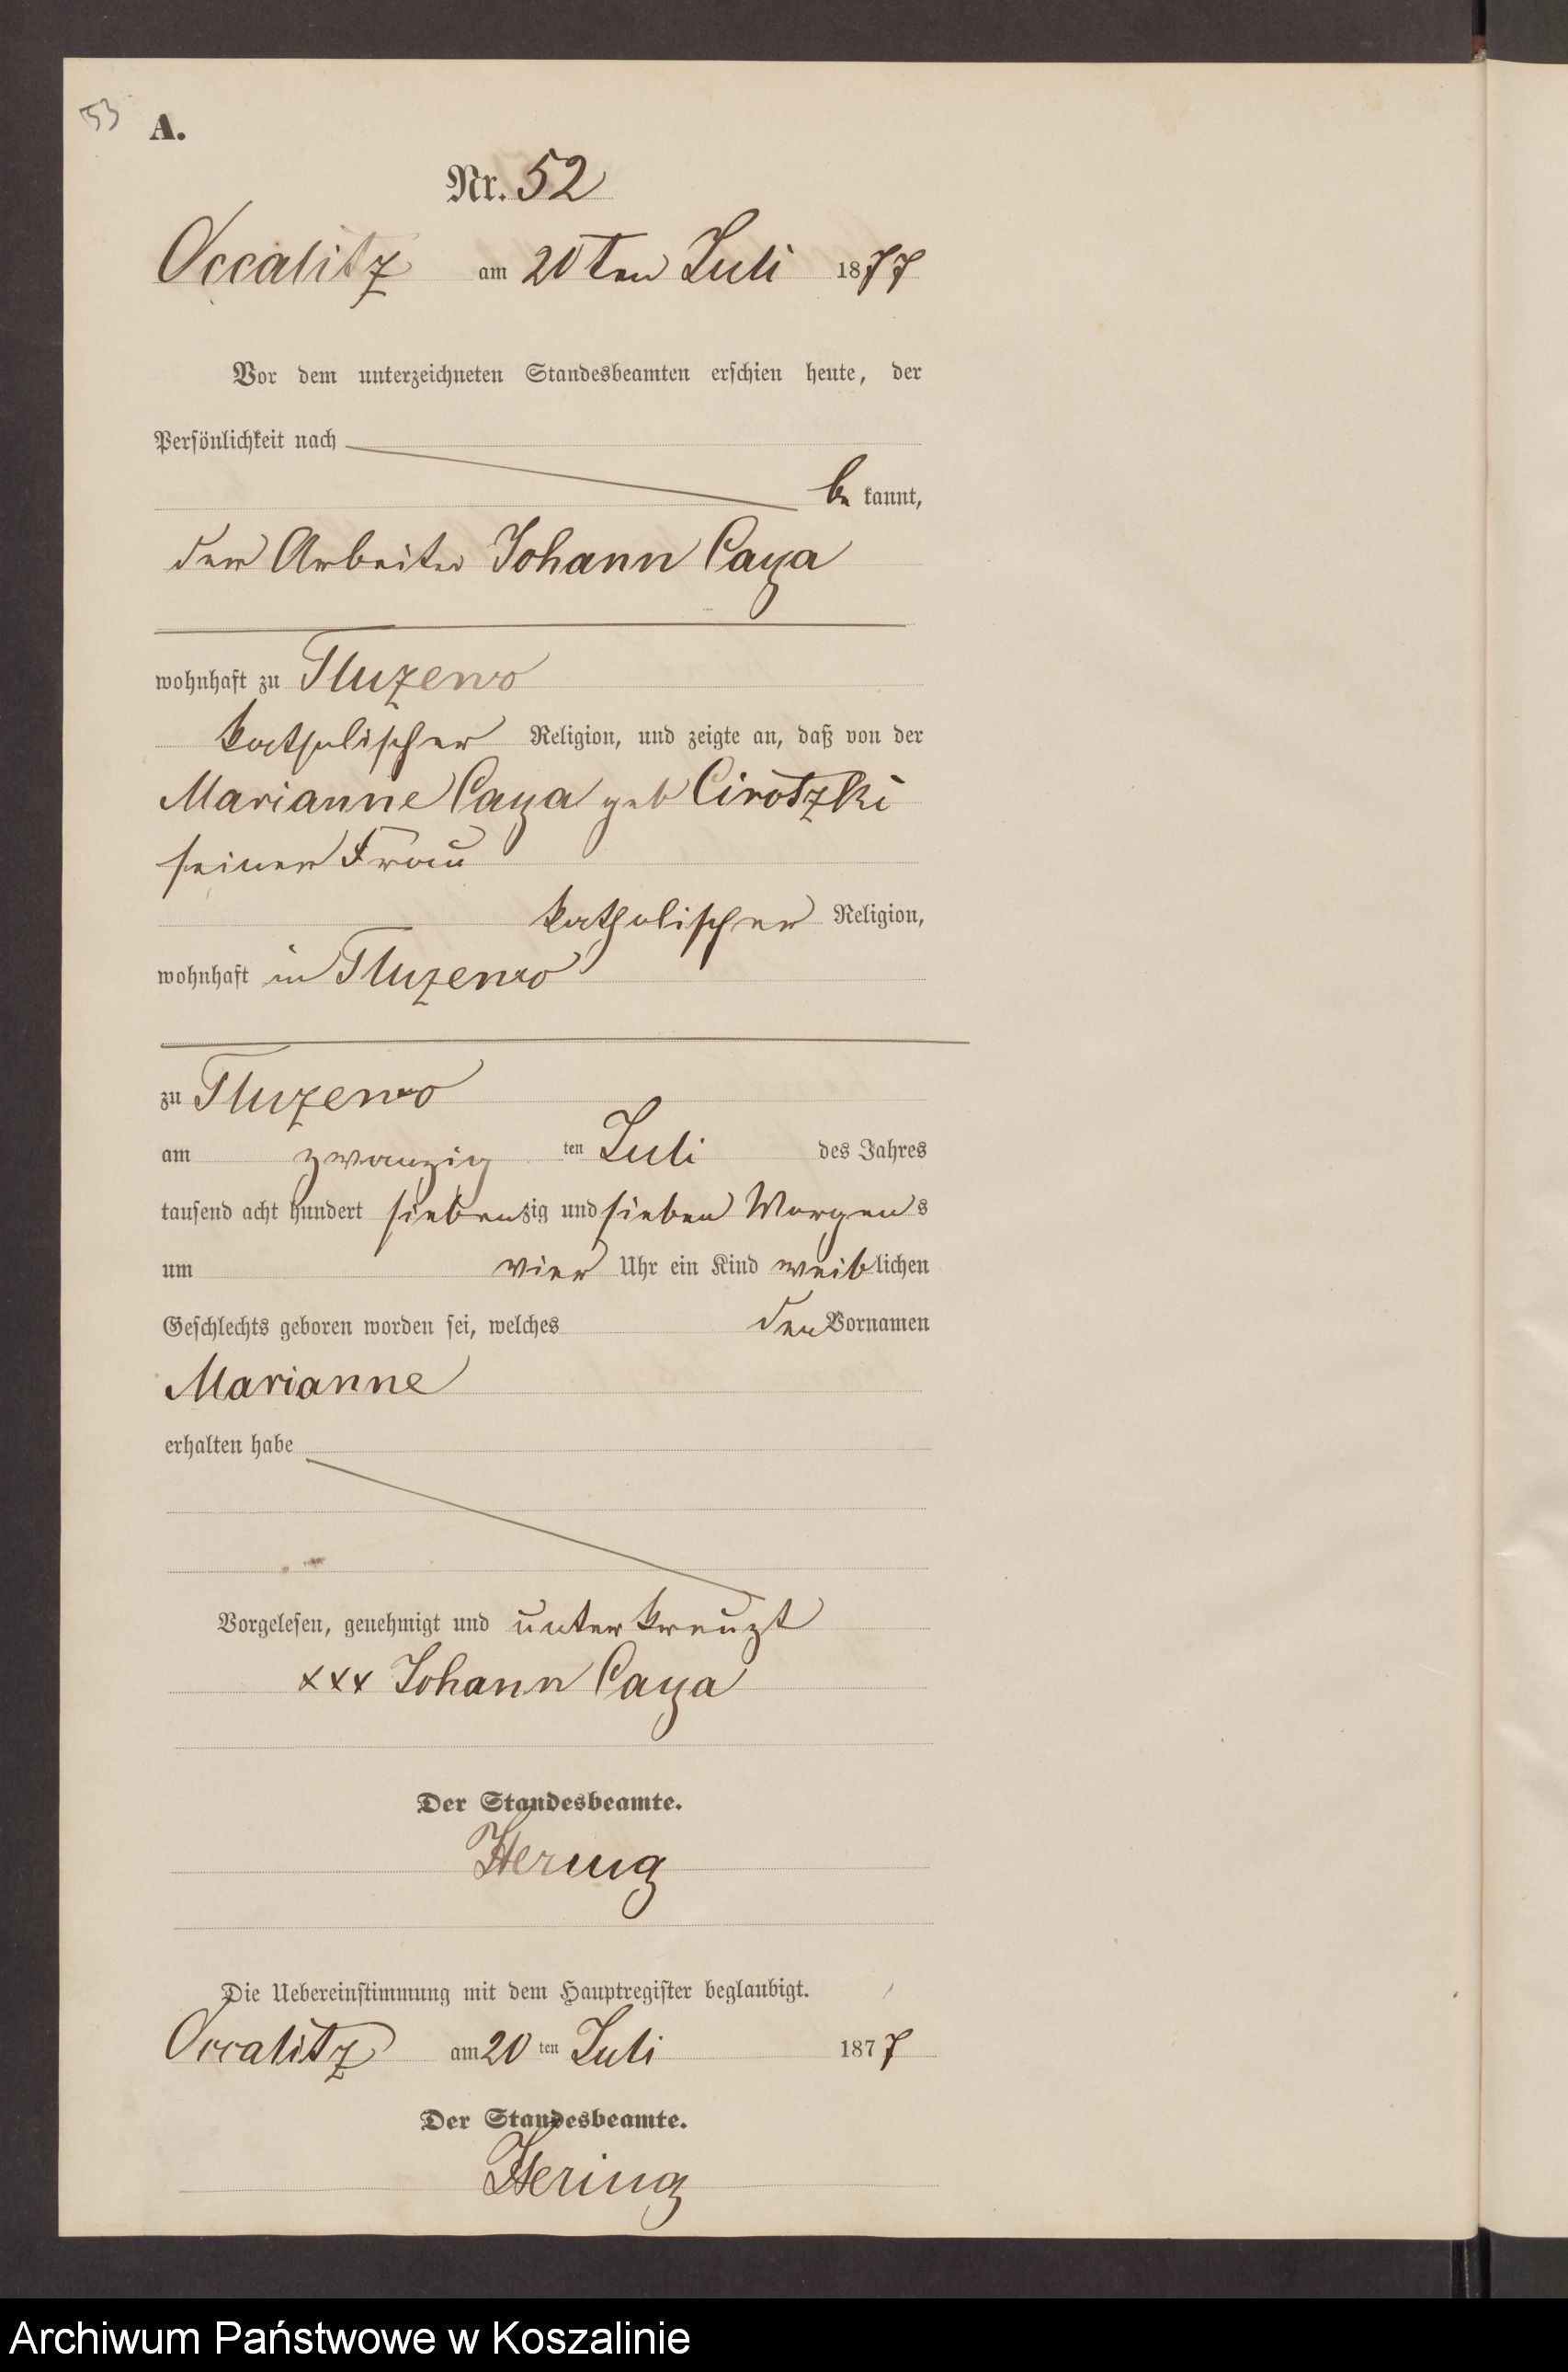 53
A.
Nr. 52
Occalitz am 20ten Juli 1877
Vor dem unterzeichneten Standesbeamten erschien heute, der
Persönlichkeit nach
be kannt,
der Arbeiter Johann Caya
wohnhaft zu Tluzewo
katholischer Religion, und zeigte an, daß von der
Marianne Caya geb Cirotzki
seiner Frau
katholischer Religion,
wohnhaft in Tluzewo
zu Tluzewo
am zwanzig ten Juli des Jahres
tausend acht hundert siebenzig und sieben Morgens
um vier Uhr ein Kind weiblichen
Geschlechts geboren worden sei, welches den Vornamen
Marianne
erhalten habe
Vorgelesen, genehmigt und unterkreuzt
xxx Johann Caya
Der Standesbeamte.
Hering
Die Uebereinstimmung mit dem Hauptregister beglaubigt.
Occalitz am 20 ten Juli 1877
Der Standesbeamte.
Hering
Archiwum Państwowe w Koszalinie